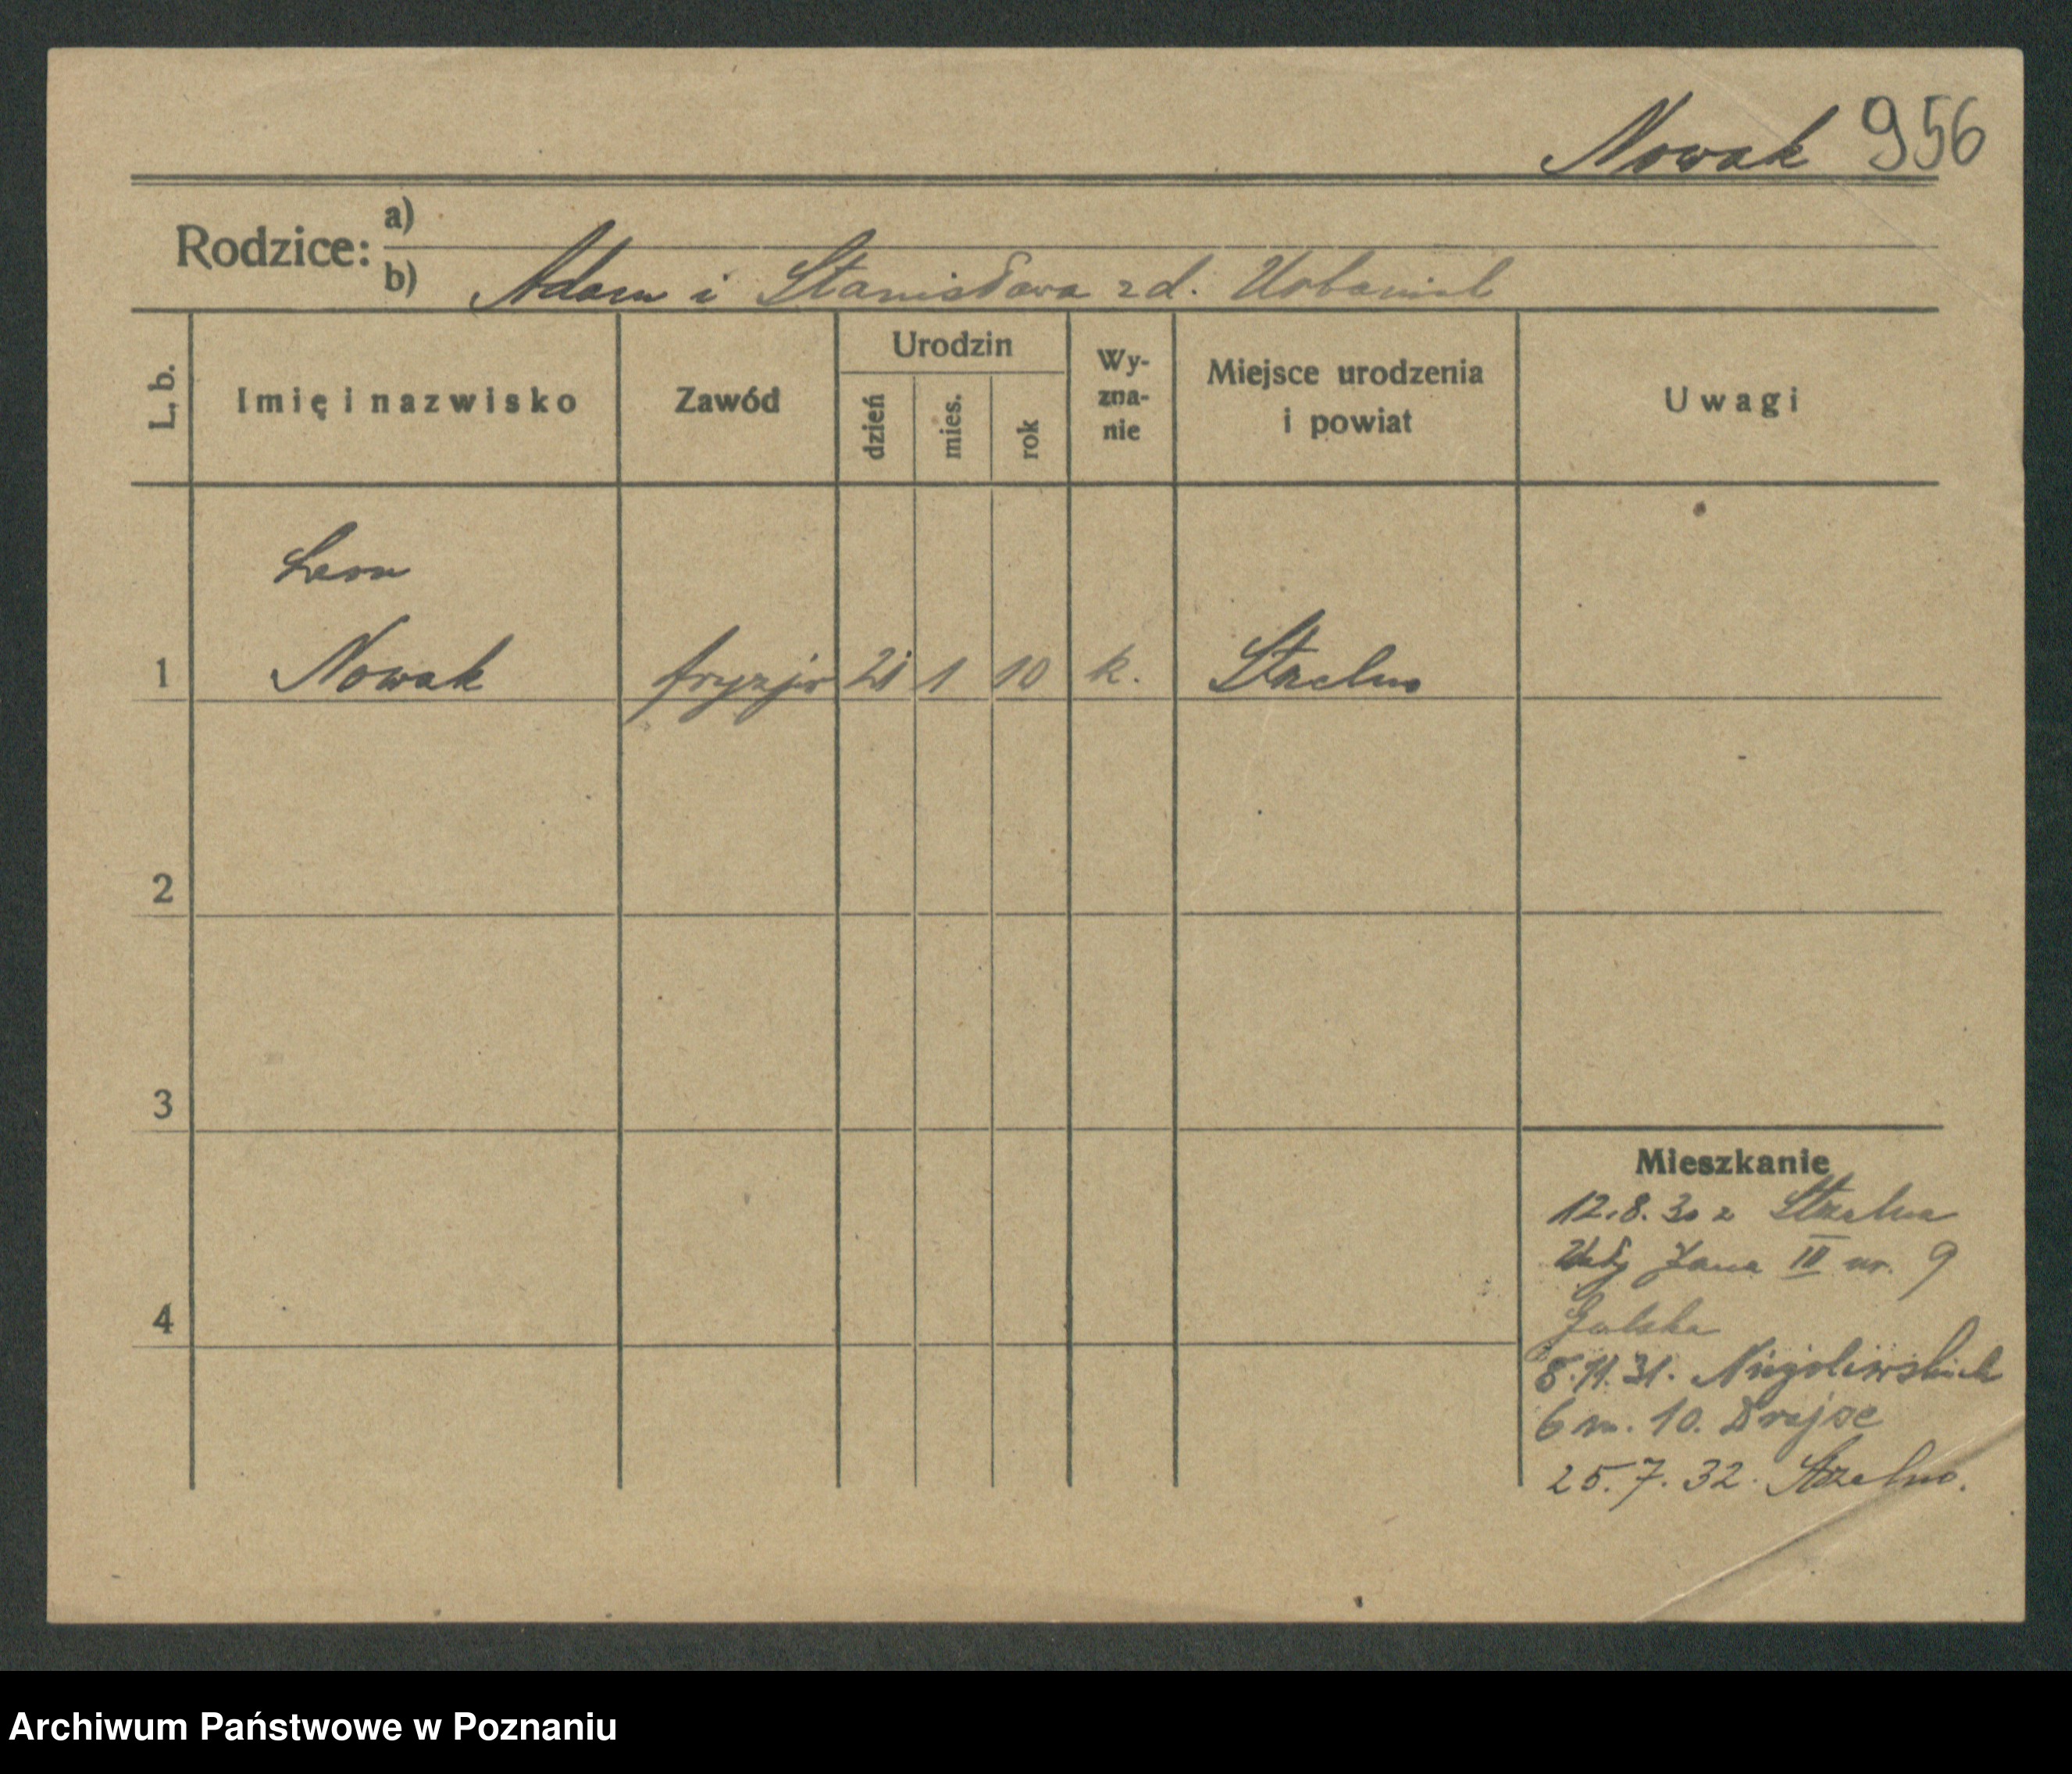 Nowak 956
Rodzice: a)
b) Adam i Stanisława zd. Urbaniak
L. b.
Imię i nazwisko
Zawód
Urodzin
dzień
mies.
rok
Wy-
zna-
nie
Miejsce urodzenia
i powiat
Uwagi
Leon
1 Nowak fryzjer 1 10 k. Strzelno
2
3
4
Mieszkanie
12.8.30 z Strzelna
Wały Jana III nr. 9
8.11.31. Niegolewskich
6 m. 10. Drajze
25.7.32. Strzelno.
Archiwum Państwowe w Poznaniu